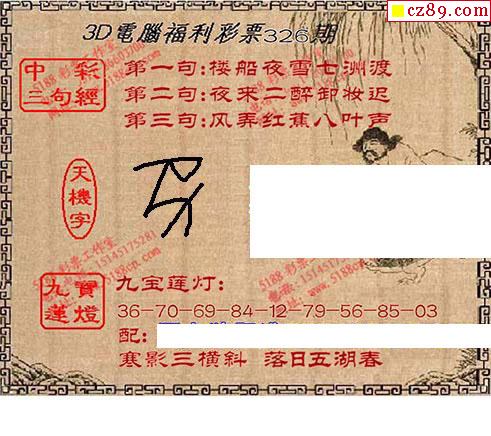 cz89.com
3D電腦福利彩票326期
中彩
三句經
第一句:楼船夜雪七洲渡
第二句:夜来二醉卸妆迟
第三句:风弄红蕉八叶声
天機字
九寶蓮燈
九宝莲灯:
36-70-69-84-12-79-56-85-03
配:
寒影三横斜 落日五湖春